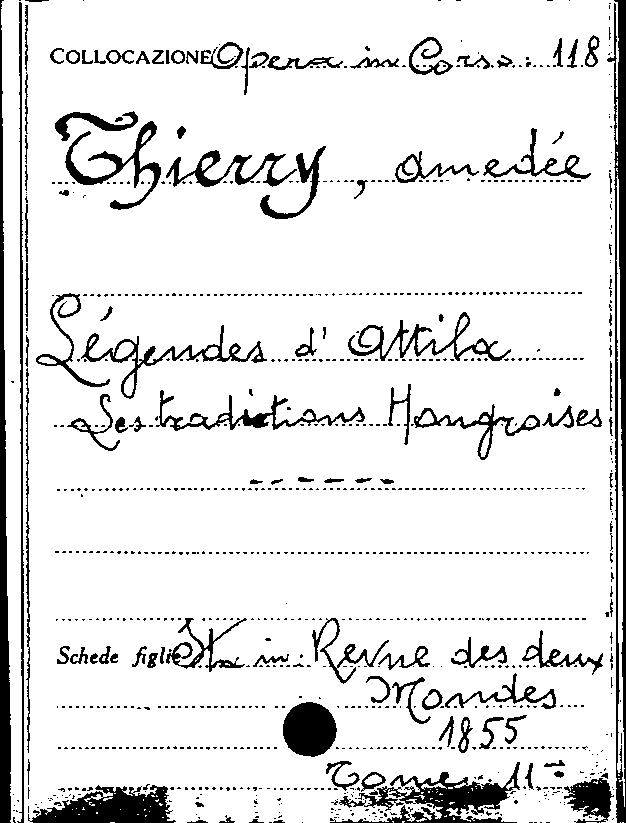 COLLOCAZIONE Opera in Corso: 118-
Thierry, amedée
Légendes d' Attila
Les tradictions Hongroises
------
Schede figlie Sta in: Revue des deux
Mondes
1855
Tome: 11-